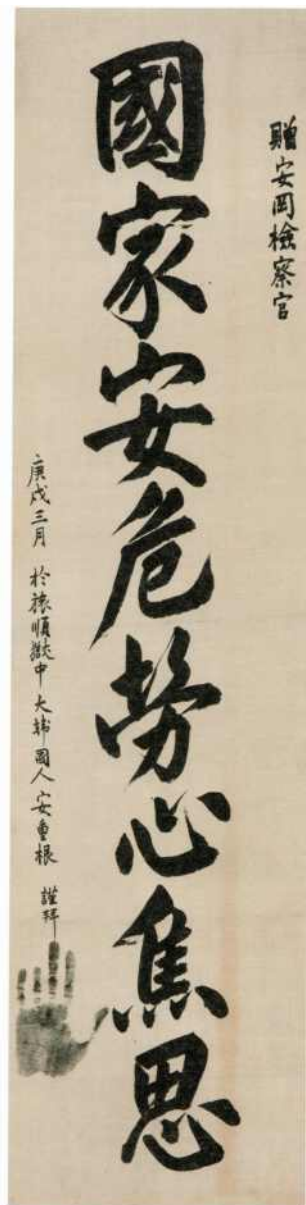 贈安岡檢察官
國家安危勞心焦思
庚戌三月 於旅順獄中 大韓國人 安重根 謹拜